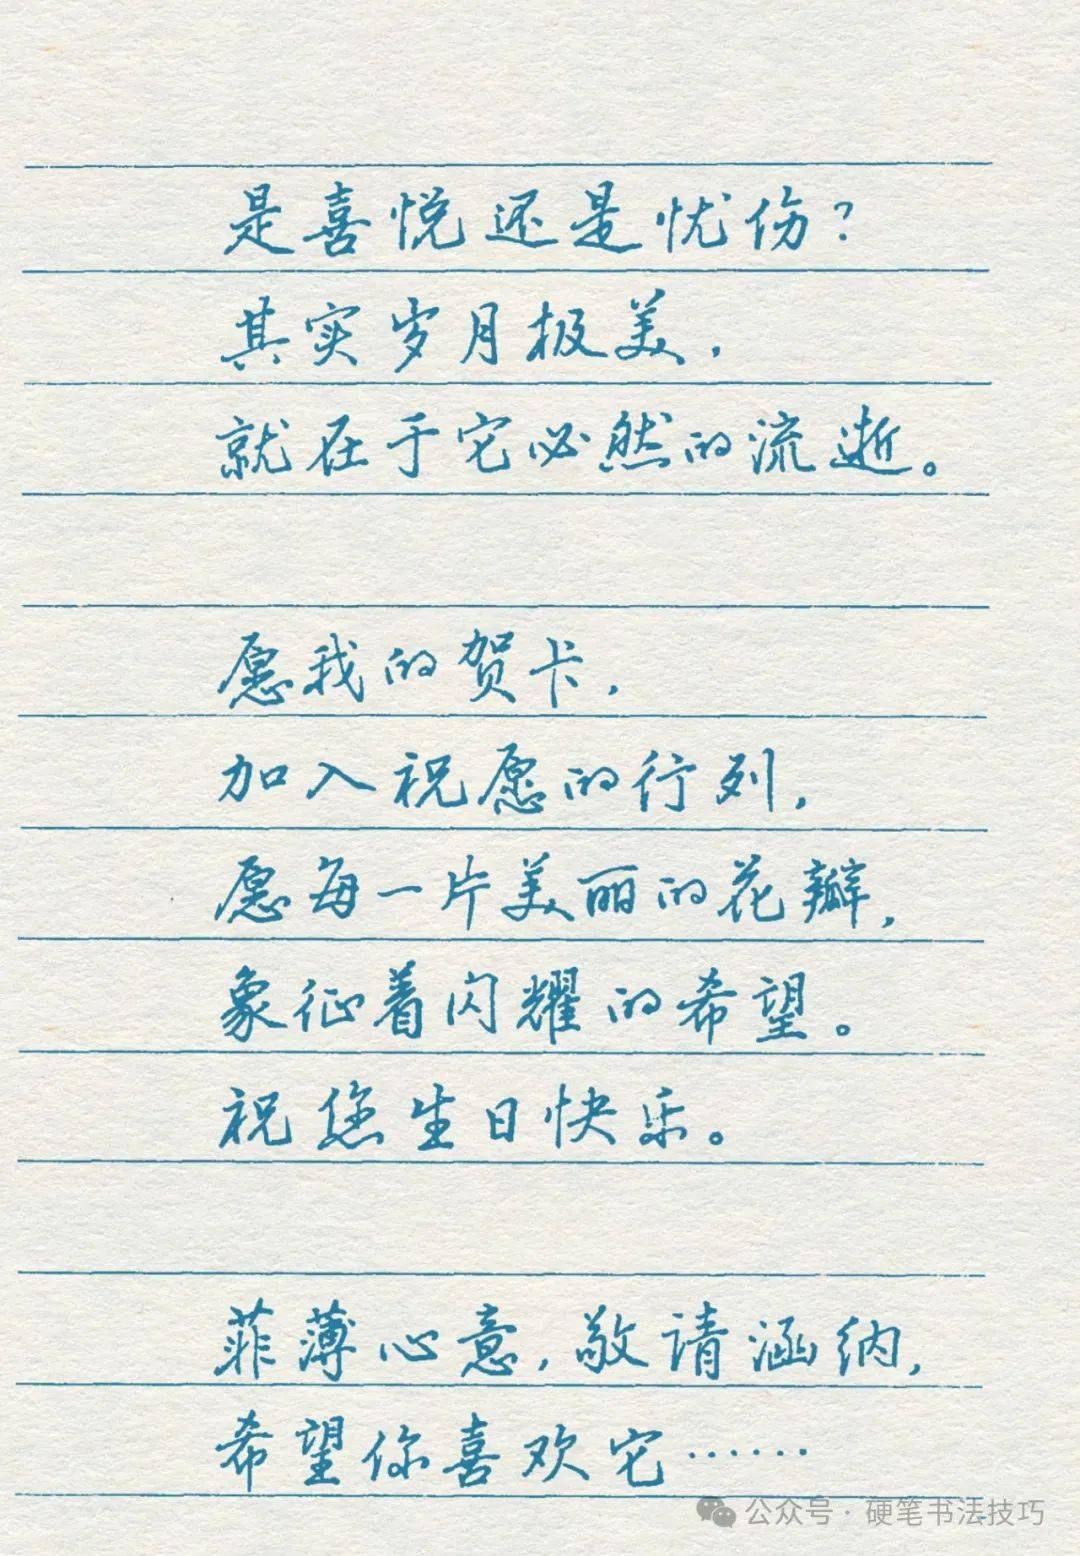 是喜悦还是忧伤?
其实岁月极美,
就在于它必然的流逝。
愿我的贺卡,
加入祝愿的行列,
愿每一片美丽的花瓣,
象征着闪耀的希望。
祝您生日快乐。
菲薄心意,敬请涵纳,
希望你喜欢它……
公众号·硬笔书法技巧